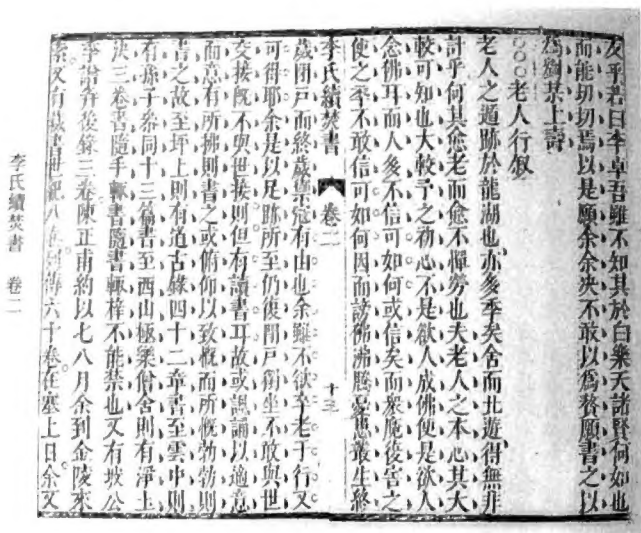 友乎若曰李卓吾雖不知其於白樂天諸賢何如也
而能切切焉以是願余余決不敢以爲贅願書之以
爲劉某上壽
○○○老人行叙
老人之遁跡於龍湖也亦多年矣舍而北遊得無非
計乎何其愈老而愈不憚勞也夫老人之本心其大
較可知也大較予之初心不是欲人成佛便是欲人
念佛耳而人多不信可如何或信矣而衆魔復害之
使之卒不敢信可如何因而謗佛沸騰憂患叢生終
李氏續焚書 卷二 十三
歲閉戶而終歲禦寇有由也余雖不欲卒老于行又
可得耶余是以足跡所至仍復閉戶獨坐不敢與世
交接既不與世接則但有讀書耳故或諷誦以適意
而意有所拂則書之或俯仰以致慨而所慨勃勃則
書之故至坪上則有道古錄四十二章書至雲中則
有孫子參同十三篇書至西山極樂僧舍則有淨土
決三卷書隨手輒書隨書輒梓不能禁也又有坡公
李說弁後錄三卷陳正甫約以七八月余到金陵來
索又有藏書世紀八卷列傳六十卷在塞上日余又
李氏續焚書 卷二